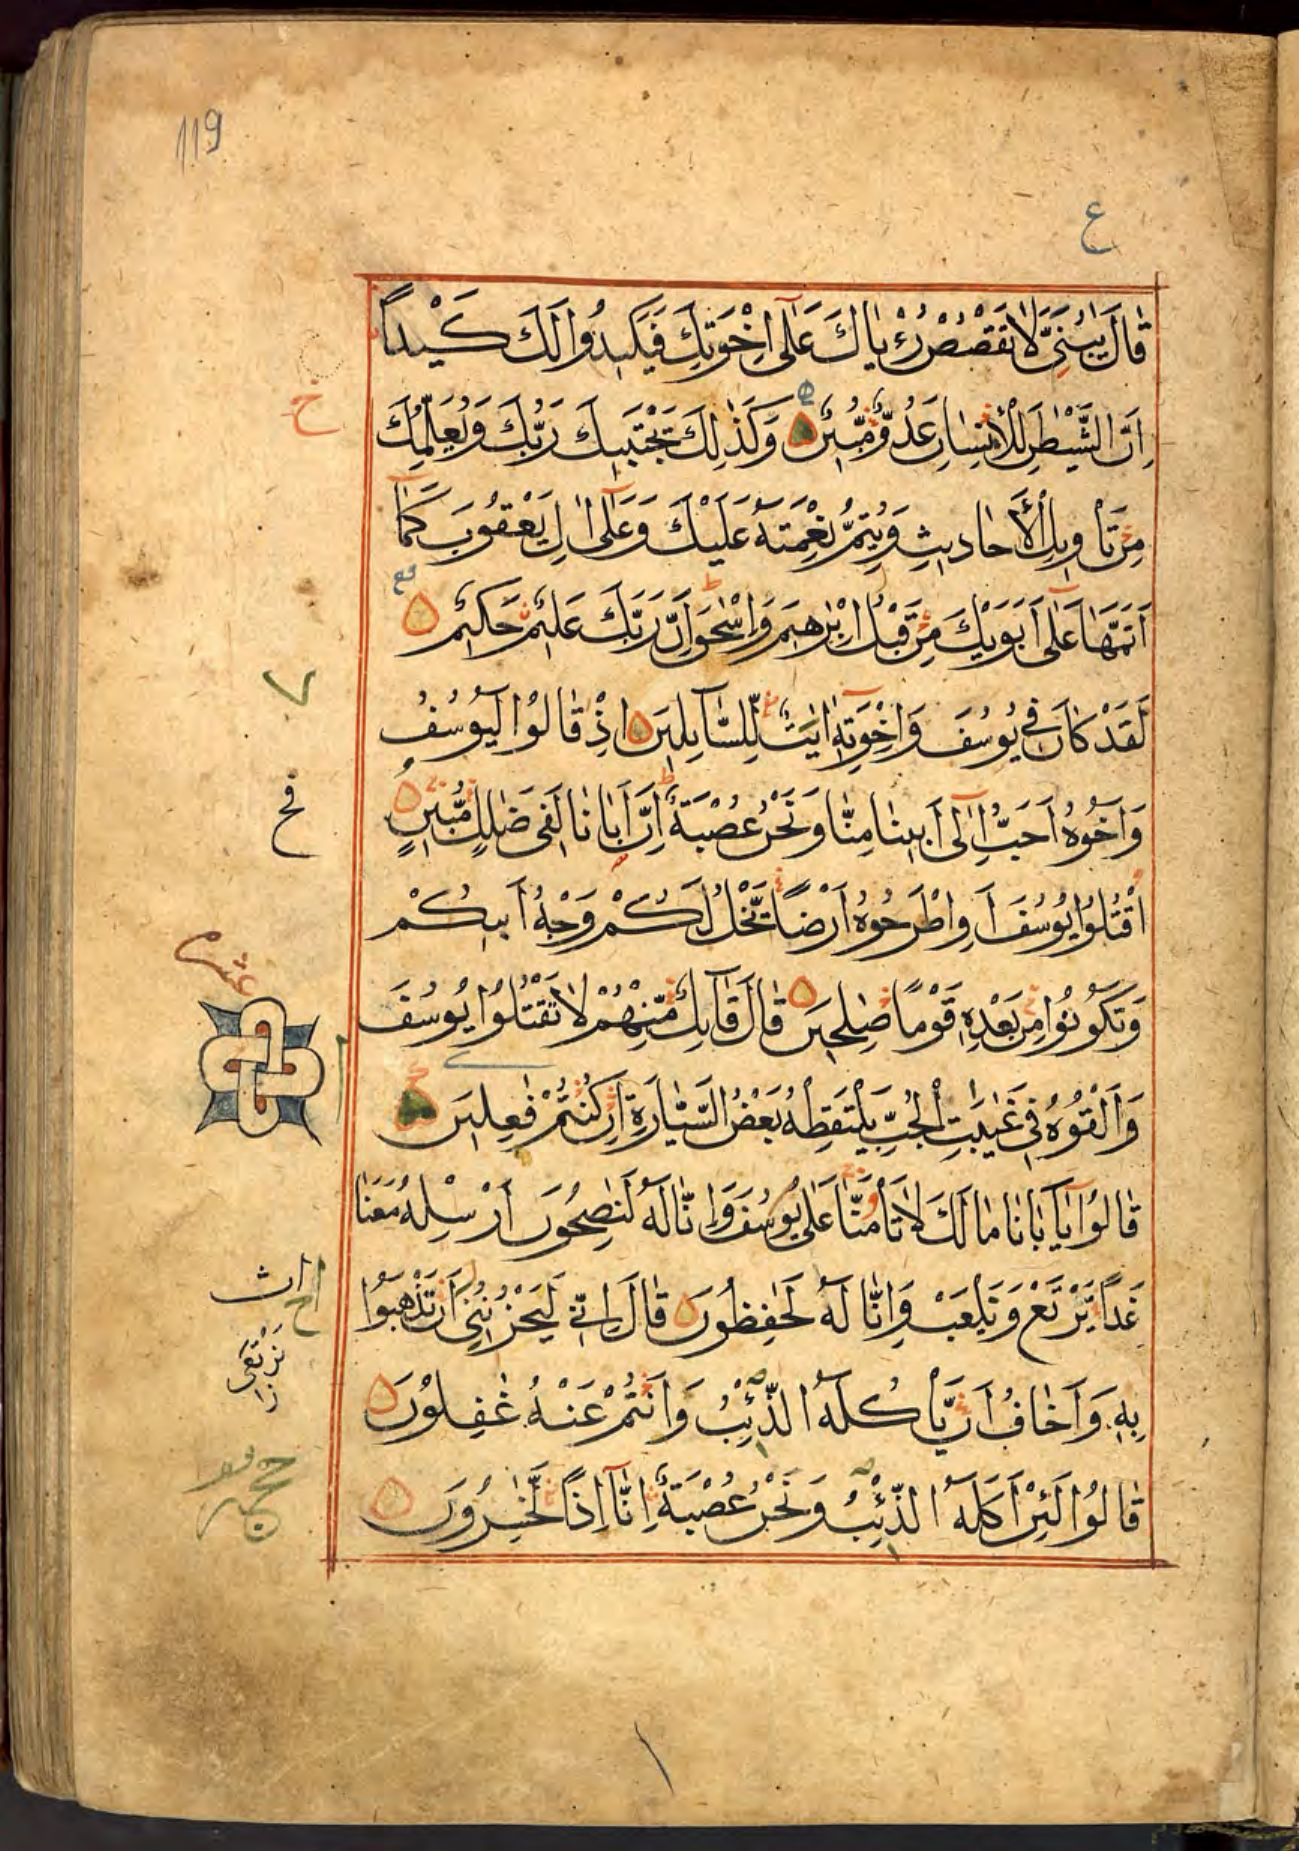 119
ع
قَالَ يٰبُنَىَّ لَا تَقْصُصْ رُءْيَاكَ عَلٰٓى اِخْوَتِكَ فَيَكِيدُوا لَكَ كَيْداً
خ
اِنَّ الشَّيْطٰنَ لِلْاِنْسَانِ عَدُوٌّ مُّبِينٌ وَكَذٰلِكَ يَجْتَبِيكَ رَبُّكَ وَيُعَلِّمُكَ
مِنْ تَأْوِيلِ الْاَحَادِيثِ وَيُتِمُّ نِعْمَتَهُ عَلَيْكَ وَعَلٰٓى اٰلِ يَعْقُوبَ كَمَآ
اَتَمَّهَا عَلٰٓى اَبَوَيْكَ مِنْ قَبْلُ اِبْرٰهِيمَ وَاِسْحٰقَ اِنَّ رَبَّكَ عَلِيمٌ حَكِيمٌ
لَقَدْ كَانَ فِى يُوسُفَ وَاِخْوَتِهٖٓ اٰيٰتٌ لِّلسَّآيِلِينَ اِذْ قَالُوْا لَيُوسُفُ
وَاَخُوهُ اَحَبُّ اِلٰٓى اَبِينَا مِنَّا وَنَحْنُ عُصْبَةٌ اِنَّ اَبَانَا لَفِى ضَلٰلٍ مُّبِينٍ
فخ
اقْتُلُوْا يُوسُفَ اَوِ اطْرَحُوهُ اَرْضاً يَّخْلُ لَكُمْ وَجْهُ اَبِيكُمْ
عشر
وَتَكُونُوْا مِنْ بَعْدِهٖ قَوْمًا صٰلِحِينَ قَالَ قَآيِلٌ مِّنْهُمْ لَا تَقْتُلُوْا يُوسُفَ
وَاَلْقُوهُ فِى غَيٰبَتِ الْجُبِّ يَلْتَقِطْهُ بَعْضُ السَّيَّارَةِ اِنْ كُنْتُمْ فٰعِلِينَ
قَالُوْا يٰٓاَبَانَا مَالَكَ لَا تَأْمَنَّا عَلٰى يُوسُفَ وَاِنَّا لَهُ لَنٰصِحُونَ اَرْسِلْهُ مَعَنَا
غَداً يَّرْتَعْ وَيَلْعَبْ وَاِنَّا لَهُ لَحٰفِظُونَ قَالَ اِنِّى لَيَحْزُنُنِىٓ اَنْ تَذْهَبُوْا
بِهٖ وَاَخَافُ اَنْ يَّأْكُلَهُ الذِّئْبُ وَاَنْتُمْ عَنْهُ غٰفِلُوْنَ
قَالُوْا لَئِنْ اَكَلَهُ الذِّئْبُ وَنَحْنُ عُصْبَةٌ اِنَّآ اِذاً لَّخٰسِرُونَ